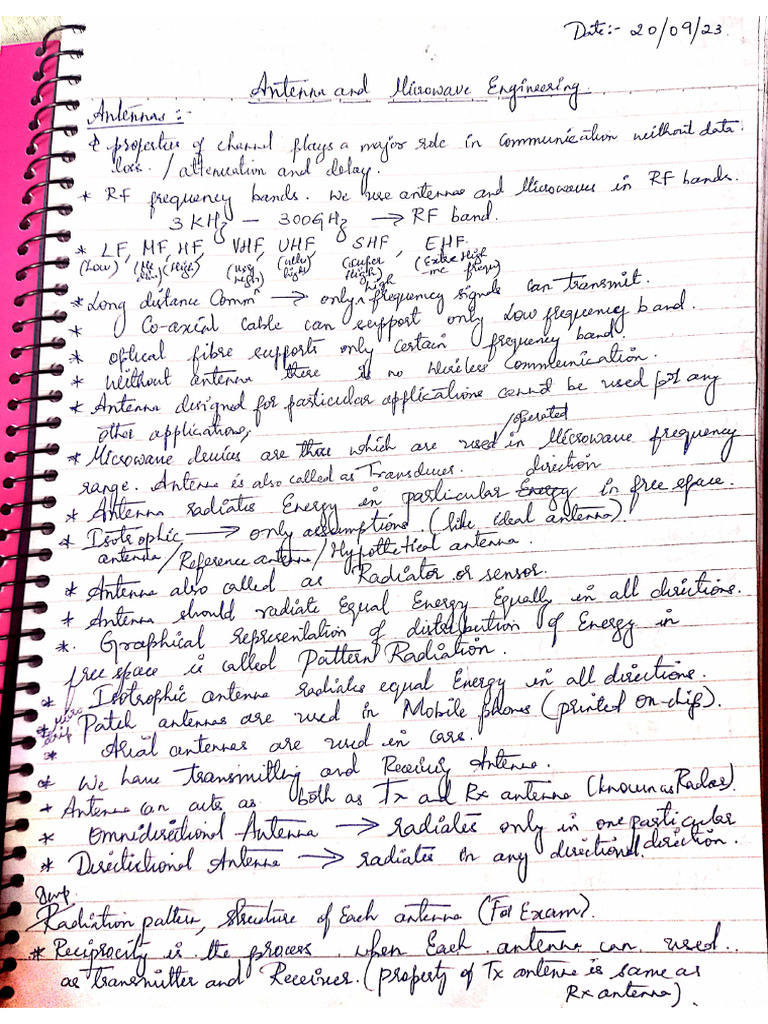 Date:- 20/09/23
Antenna and Microwave Engineering.
Antennas :-
* properties of channel plays a major role in communication without data
loss. / attenuation and delay.
* RF frequency bands. We use antennas and Microwaves in RF bands.
3 KHz — 300GHz → RF band.
* LF, MF, HF, VHF, UHF, SHF, EHF.
(Low) (High) (very high) (ultra high) (Super High) (Extre High freq)
* Long distance Commn → only high frequency signals can transmit.
* Co-axial cable can support only low frequency band.
* optical fibre supports only certain frequency band.
* without antenna there is no wireless Communication.
* Antenna designed for particular applications cannot be used for any
other applications,
* Microwave devices are those which are used/operated in Microwave frequency
range. Antenna is also called as Transducer.
* Antenna radiates Energy in particular Energy direction in free space.
* Isotrophic → only assumptions. (like ideal antenna).
antenna/Reference antenna/Hypothetical antenna.
* Antenna also called as Radiator or sensor.
* Antenna should radiate Equal Energy Equally in all directions.
*. Graphical Representation of distribution of Energy in
free space is called Pattern Radiation.
* Isotrophic antenna radiates equal Energy in all directions.
* Micro strip Patch antennas are used in Mobile phones (printed on-chip).
* Arial antennas are used in cars.
* We have transmitting and Receiving Antenna.
* Antenna can acts as both as Tx and Rx antenna (known as Radar).
* Omnidirectional Antenna → radiates only in one particular
direction.
* Directictional Antenna → radiates in any directional.
Imp
Radiation pattern, structure of Each antenna (For Exam).
* Reciprocity is the process when Each antenna can used
as transmitter and Receiver. (property of Tx antenna is same as
Rx antenna).